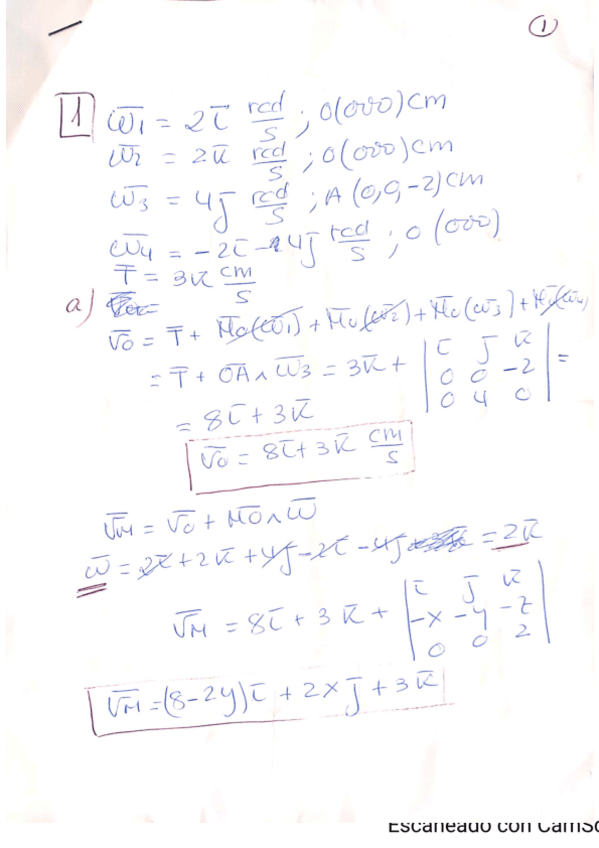 ①
1 ω̄1 = 2ī rad/s ; O(000) cm
ω̄2 = 2k̄ rad/s ; O(000) cm
ω̄3 = 4j̄ rad/s ; A(0,0,-2) cm
ω̄4 = -2ī - 4j̄ rad/s ; O(000)
T̄ = 3k̄ cm/s
a)
v̄o = T̄ + M̄o(ω̄1) + M̄o(ω̄2) + M̄o(ω̄3) + M̄o(ω̄4)
= T̄ + OA ∧ ω̄3 = 3k̄ + | ī j̄ k̄ | =
| 0 0 -2 |
| 0 4 0 |
= 8ī + 3k̄
v̄o = 8ī + 3k̄ cm/s
v̄M = v̄o + MO ∧ ω̄
ω̄ = 2ī + 2k̄ + 4j̄ - 2ī - 4j̄ = 2k̄
v̄M = 8ī + 3k̄ + | ī j̄ k̄ |
| -x -y -z |
| 0 0 2 |
v̄M = (8-2y)ī + 2xj̄ + 3k̄